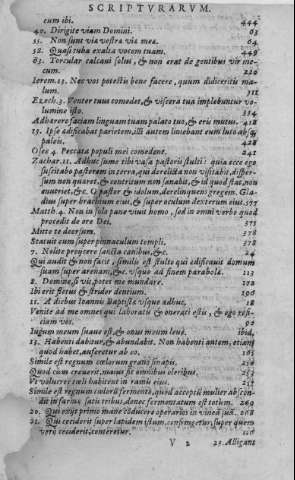 SCRIPTVRARVM.
cum ibi. 444
40. Dirigite viam Domini. 63
55. Non sunt viæ vestræ viæ meæ. 64
58. Quasi tuba exalta vocem tuam. 449
63. Torcular calcaui solus, & non erat de gentibus vir mecum. 220
Ierem. 13. Nec vos potestis bene facere, quum didiceritis malum. 311
Ezech. 3. Venter tuus comedet, & viscera tua implebuntur volumine isto. 354
Adhærere faciam linguam tuam palato tuo, & eris mutus. 418
13. Ipse ædificabat parietem, illi autem liniebant eum luto absque paleis. 428
Osee 4. Peccata populi mei comedent. 241
Zachar. 11. Adhuc sume tibi vasa pastoris stulti: quia ecce ego
suscitabo pastorem in terra, qui derelicta non visitabit, dispersum
non quæret, & contritum non sanabit, & id quod stat, non
enutriet, &c. O pastor & idolum, derelinquens gregem. Gladius
super brachium eius, & super oculum dexterum eius. 577
Matth. 4. Non in solo pane viuit homo, sed in omni verbo quod
procedit de ore Dei. 371
Mitte te deorsum. 378
Statuit eum super pinnaculum templi. 378
7. Nolite proijcere sancta canibus, &c.
Qui audit & non facit, similis est stulto qui ædificauit domum
suam super arenam, &c. vsque ad finem parabolæ. 113
8. Domine, si vis, potes me mundare.
Ibi erit fletus & stridor dentium.
11. A diebus Ioannis Baptistæ vsque adhuc. 18
Venite ad me omnes qui laboratis & onerati estis, & ego reficiam vos. 92
Iugum meum suaue est, & onus meum leue. ibid.
13. Habenti dabitur, & abundabit. Non habenti autem, etiam
quod habet, auferetur ab eo. 163
Simile est regnum cœlorum grano sinapis.
Quod cum creuerit, maius sit omnibus oleribus.
Vt volucres cœli habitent in ramis eius.
Simile est regnum cœlorum fermento, quod acceptum mulier abscondit
in farinæ satis tribus, donec fermentatum est totum. 269
20. Qui exijt primo mane conducere operarios in vineam suam. 268
21. Qui ceciderit super lapidem istum, confringetur, super quem
vero ceciderit, conteret eum.
V 2 23. Alligant